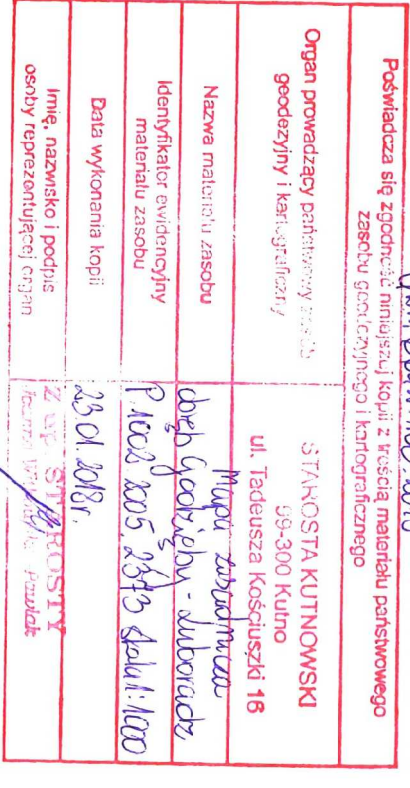 Poświadcza się zgodność niniejszej kopii z treścią materiału państwowego
zasobu geodezyjnego i kartograficznego
Organ prowadzący państwowy zasób
geodezyjny i kartograficzny
STAROSTA KUTNOWSKI
99-300 Kutno
ul. Tadeusza Kościuszki 16
Nazwa materiału zasobu
Mapa zasadnicza
Identyfikator ewidencyjny
materiału zasobu
P.1002.2005.2373 skala 1:1000
Data wykonania kopii
23.01.2018r.
Imię, nazwisko i podpis
osoby reprezentującej organ
Z up. STAROSTY
Pawlak